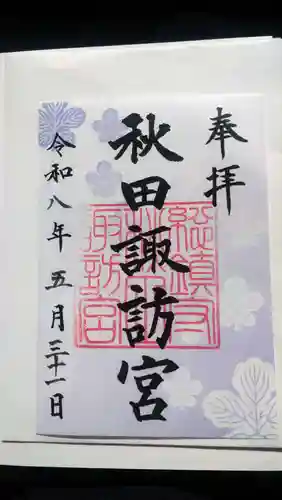 奉拝
秋田諏訪宮
令和八年五月三十一日